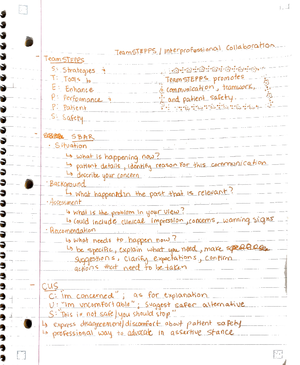 TeamSTEPPS / Interprofessional Collaboration
TeamSTEPPS
S: Strategies &
T: Tools to
TeamSTEPPS promotes
E: Enhance
communication, teamwork,
P: Performance &
and patient safety.
P: Patient
S: Safety
SBAR
Situation
↳ what is happening now?
↳ patient details, identify reason for this communication
↳ describe your concern
Background
↳ What happened in the past that is relevant?
Assessment
↳ What is the problem in your view?
↳ could include clinical impression, concerns, warning signs
Recomendation
↳ What needs to happen now?
↳ be specific, explain what you need, make
suggestions, clarify expectations, confirm
actions that need to be taken
CUS
C: "im concerned"; as for explanation
U: "im uncomfortable"; suggest safer alternative
S: "This is not safe/you should stop"
↳ express disagreement/discomfort about patient safety
↳ professional way to advocate in assertive stance